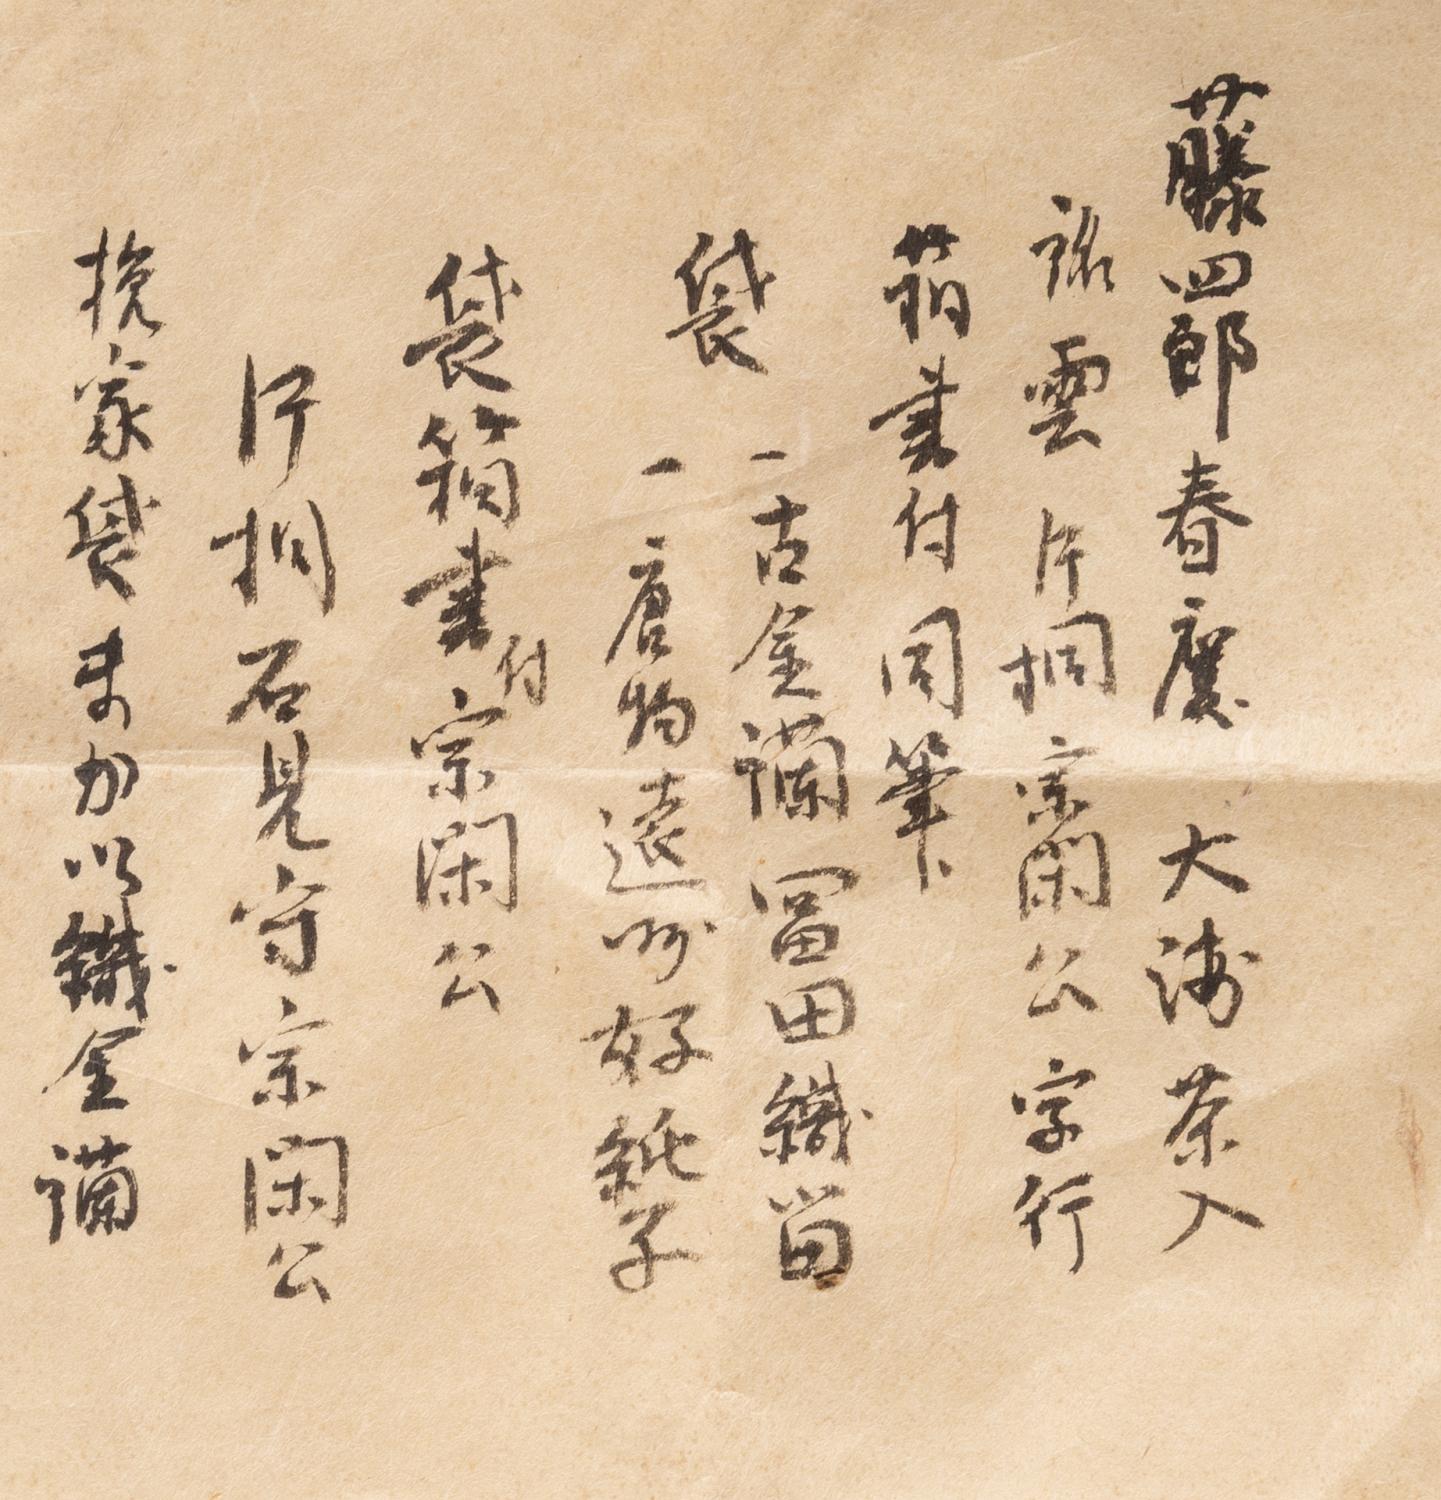 藤四郎春慶 大海茶入
銘雲 片桐宗関公字行
箱書付同筆
袋 一古金襴 冨田織留
一唐物遠州好純子
袋箱書付宗関公
片桐石見守宗関公
挽家袋 以織金襴